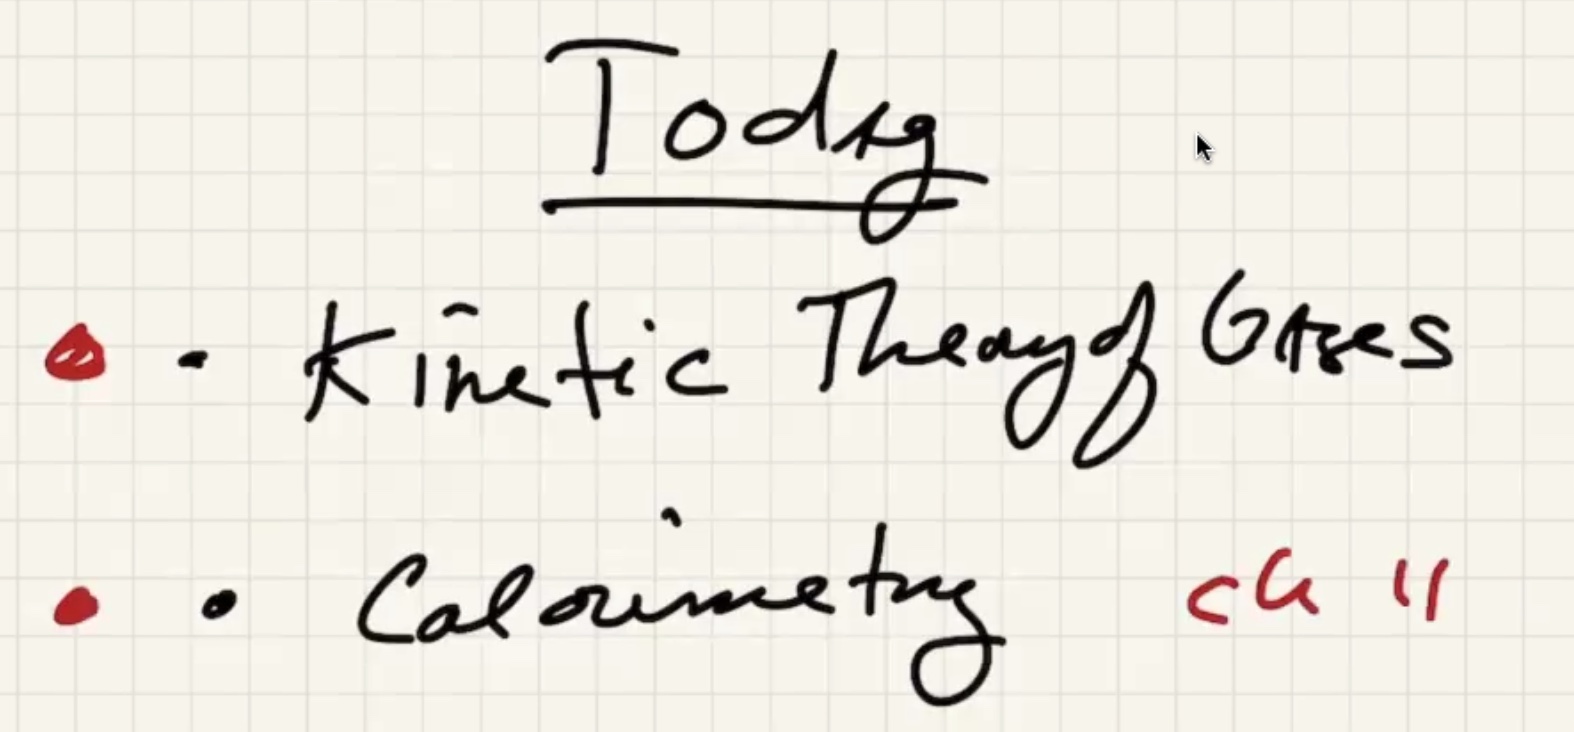 Today
• Kinetic Theory of Gases
• Calorimetry ch 11